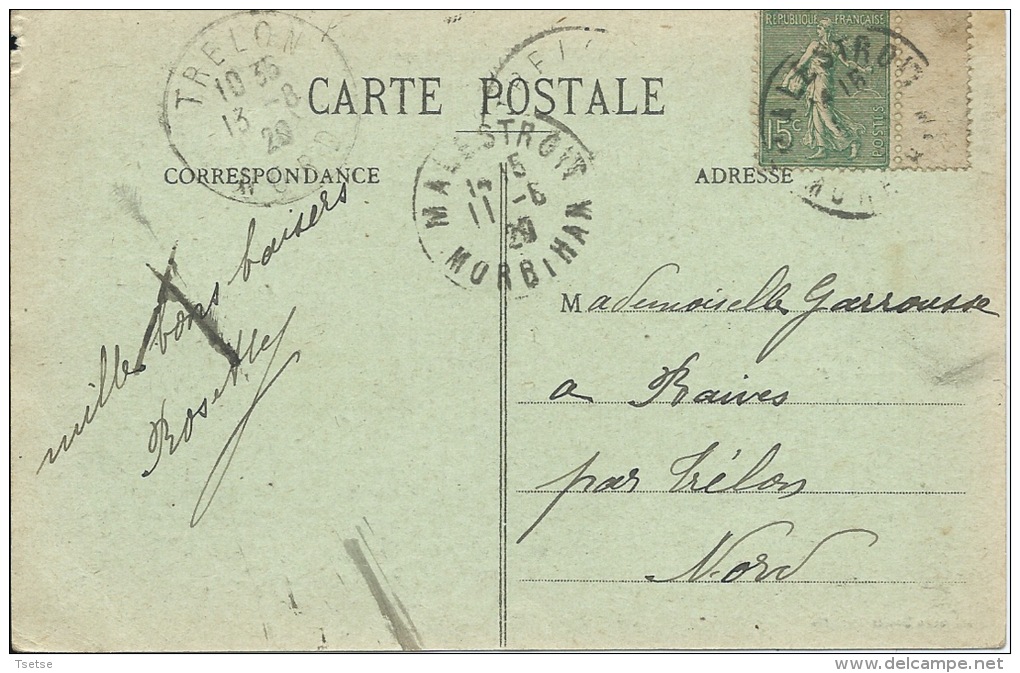 TRELON
10 35
13 -8
20
NORD
CARTE POSTALE
RÉPUBLIQUE FRANÇAISE
15c
POSTES
MALESTROIT
MALESTROIT
5
11 -8
20
MORBIHAN
CORRESPONDANCE
ADRESSE
mille bons baisers
Mademoiselle Garrousse
a Raives
par Trélon
Nord
Tsetse
delcampe.net